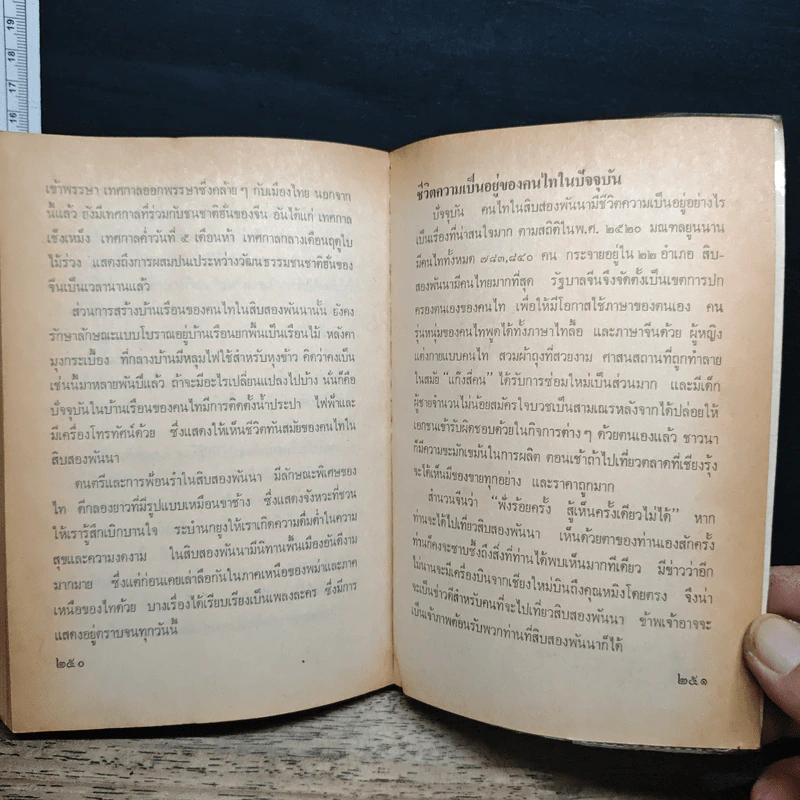 เข้าพรรษา เทศกาลออกพรรษาซึ่งคล้ายๆ กับเมืองไทย นอกจาก
นี้แล้ว ยังมีเทศกาลที่ร่วมกับชนชาติฮั่นของจีน อันได้แก่ เทศกาล
เช็งเหม็ง เทศกาลค่ำวันที่ ๕ เดือนห้า เทศกาลกลางเดือนฤดูใบ
ไม้ร่วง แสดงถึงการผสมปนเประหว่างวัฒนธรรมชนชาติฮั่นของ
จีนเป็นเวลานานแล้ว
ส่วนการสร้างบ้านเรือนของคนไทในสิบสองพันนานั้น ยังคง
รักษาลักษณะแบบโบราณอยู่บ้านเรือนยกพื้นเป็นเรือนไม้ หลังคา
มุงกระเบื้อง ที่กลางบ้านมีหลุมไฟใช้สำหรับหุงข้าว คิดว่าคงเป็น
เช่นนี้มาหลายพันปีแล้ว ถ้าจะมีอะไรเปลี่ยนแปลงไปบ้าง นั่นก็คือ
ปัจจุบันในบ้านเรือนของคนไทมีการติดตั้งน้ำประปา ไฟฟ้าและ
มีเครื่องโทรทัศน์ด้วย ซึ่งแสดงให้เห็นชีวิตทันสมัยของคนไทใน
สิบสองพันนา
ดนตรีและการฟ้อนรำในสิบสองพันนา มีลักษณะพิเศษของ
ไท ตีกลองยาวที่มีรูปแบบเหมือนขาช้าง ซึ่งแสดงจังหวะที่ชวน
ให้เรารู้สึกเบิกบานใจ ระบำนกยูงให้เราเกิดความดื่มด่ำในความ
สุขและความงดงาม ในสิบสองพันนามีนิทานพื้นเมืองอันดีงาม
มากมาย ซึ่งแต่ก่อนเคยเล่าลือกันในภาคเหนือของพม่าและภาค
เหนือของไทด้วย บางเรื่องได้เรียบเรียงเป็นเพลงละคร ซึ่งมีการ
แสดงอยู่ตราบจนทุกวันนี้
๒๕๐
ชีวิตความเป็นอยู่ของคนไทในปัจจุบัน
ปัจจุบัน คนไทในสิบสองพันนามีชีวิตความเป็นอยู่อย่างไร
เป็นเรื่องที่น่าสนใจมาก ตามสถิติในพ.ศ. ๒๕๒๐ มณฑลยูนนาน
มีคนไททั้งหมด ๗๘๓,๘๔๐ คน กระจายอยู่ใน ๒๒ อำเภอ สิบ-
สองพันนามีคนไทมากที่สุด รัฐบาลจีนจึงจัดตั้งเป็นเขตการปก
ครองตนเองของคนไท เพื่อให้มีโอกาสใช้ภาษาของตนเอง คน
รุ่นหนุ่มของคนไทพูดได้ทั้งภาษาไทลื้อ และภาษาจีนด้วย ผู้หญิง
แต่งกายแบบคนไท สวมผ้าถุงที่สวยงาม ศาสนสถานที่ถูกทำลาย
ในสมัย "แก๊งสี่คน" ได้รับการซ่อมใหม่เป็นส่วนมาก และมีเด็ก
ผู้ชายจำนวนไม่น้อยสมัครใจบวชเป็นสามเณรหลังจากได้ปล่อยให้
เอกชนเข้ารับผิดชอบด้วยในกิจการต่างๆ ด้วยตนเองแล้ว ชาวนา
ก็มีความขะมักเขม้นในการผลิต ตอนเช้าถ้าไปเที่ยวตลาดที่เชียงรุ้ง
จะได้เห็นมีของขายทุกอย่าง และราคาถูกมาก
สำนวนจีนว่า "ฟังร้อยครั้ง สู้เห็นครั้งเดียวไม่ได้" หาก
ท่านจะได้ไปเที่ยวสิบสองพันนา เห็นด้วยตาของท่านเองสักครั้ง
ท่านก็คงจะซาบซึ้งถึงสิ่งที่ท่านได้พบเห็นมากทีเดียว มีข่าวว่าอีก
ไม่นานจะมีเครื่องบินจากเชียงใหม่บินถึงคุณหมิงโดยตรง จึงน่า
จะเป็นข่าวดีสำหรับคนที่จะไปเที่ยวสิบสองพันนา ข้าพเจ้าอาจจะ
เป็นเจ้าภาพต้อนรับพวกท่านที่สิบสองพันนาก็ได้
๒๕๑
19
18
17
16